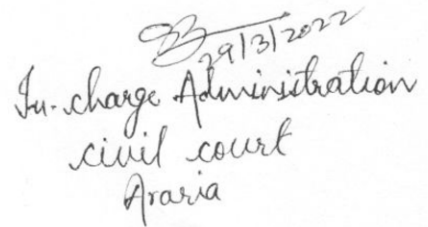 29/3/2022
In-charge Adminisitration
civil court
Araria